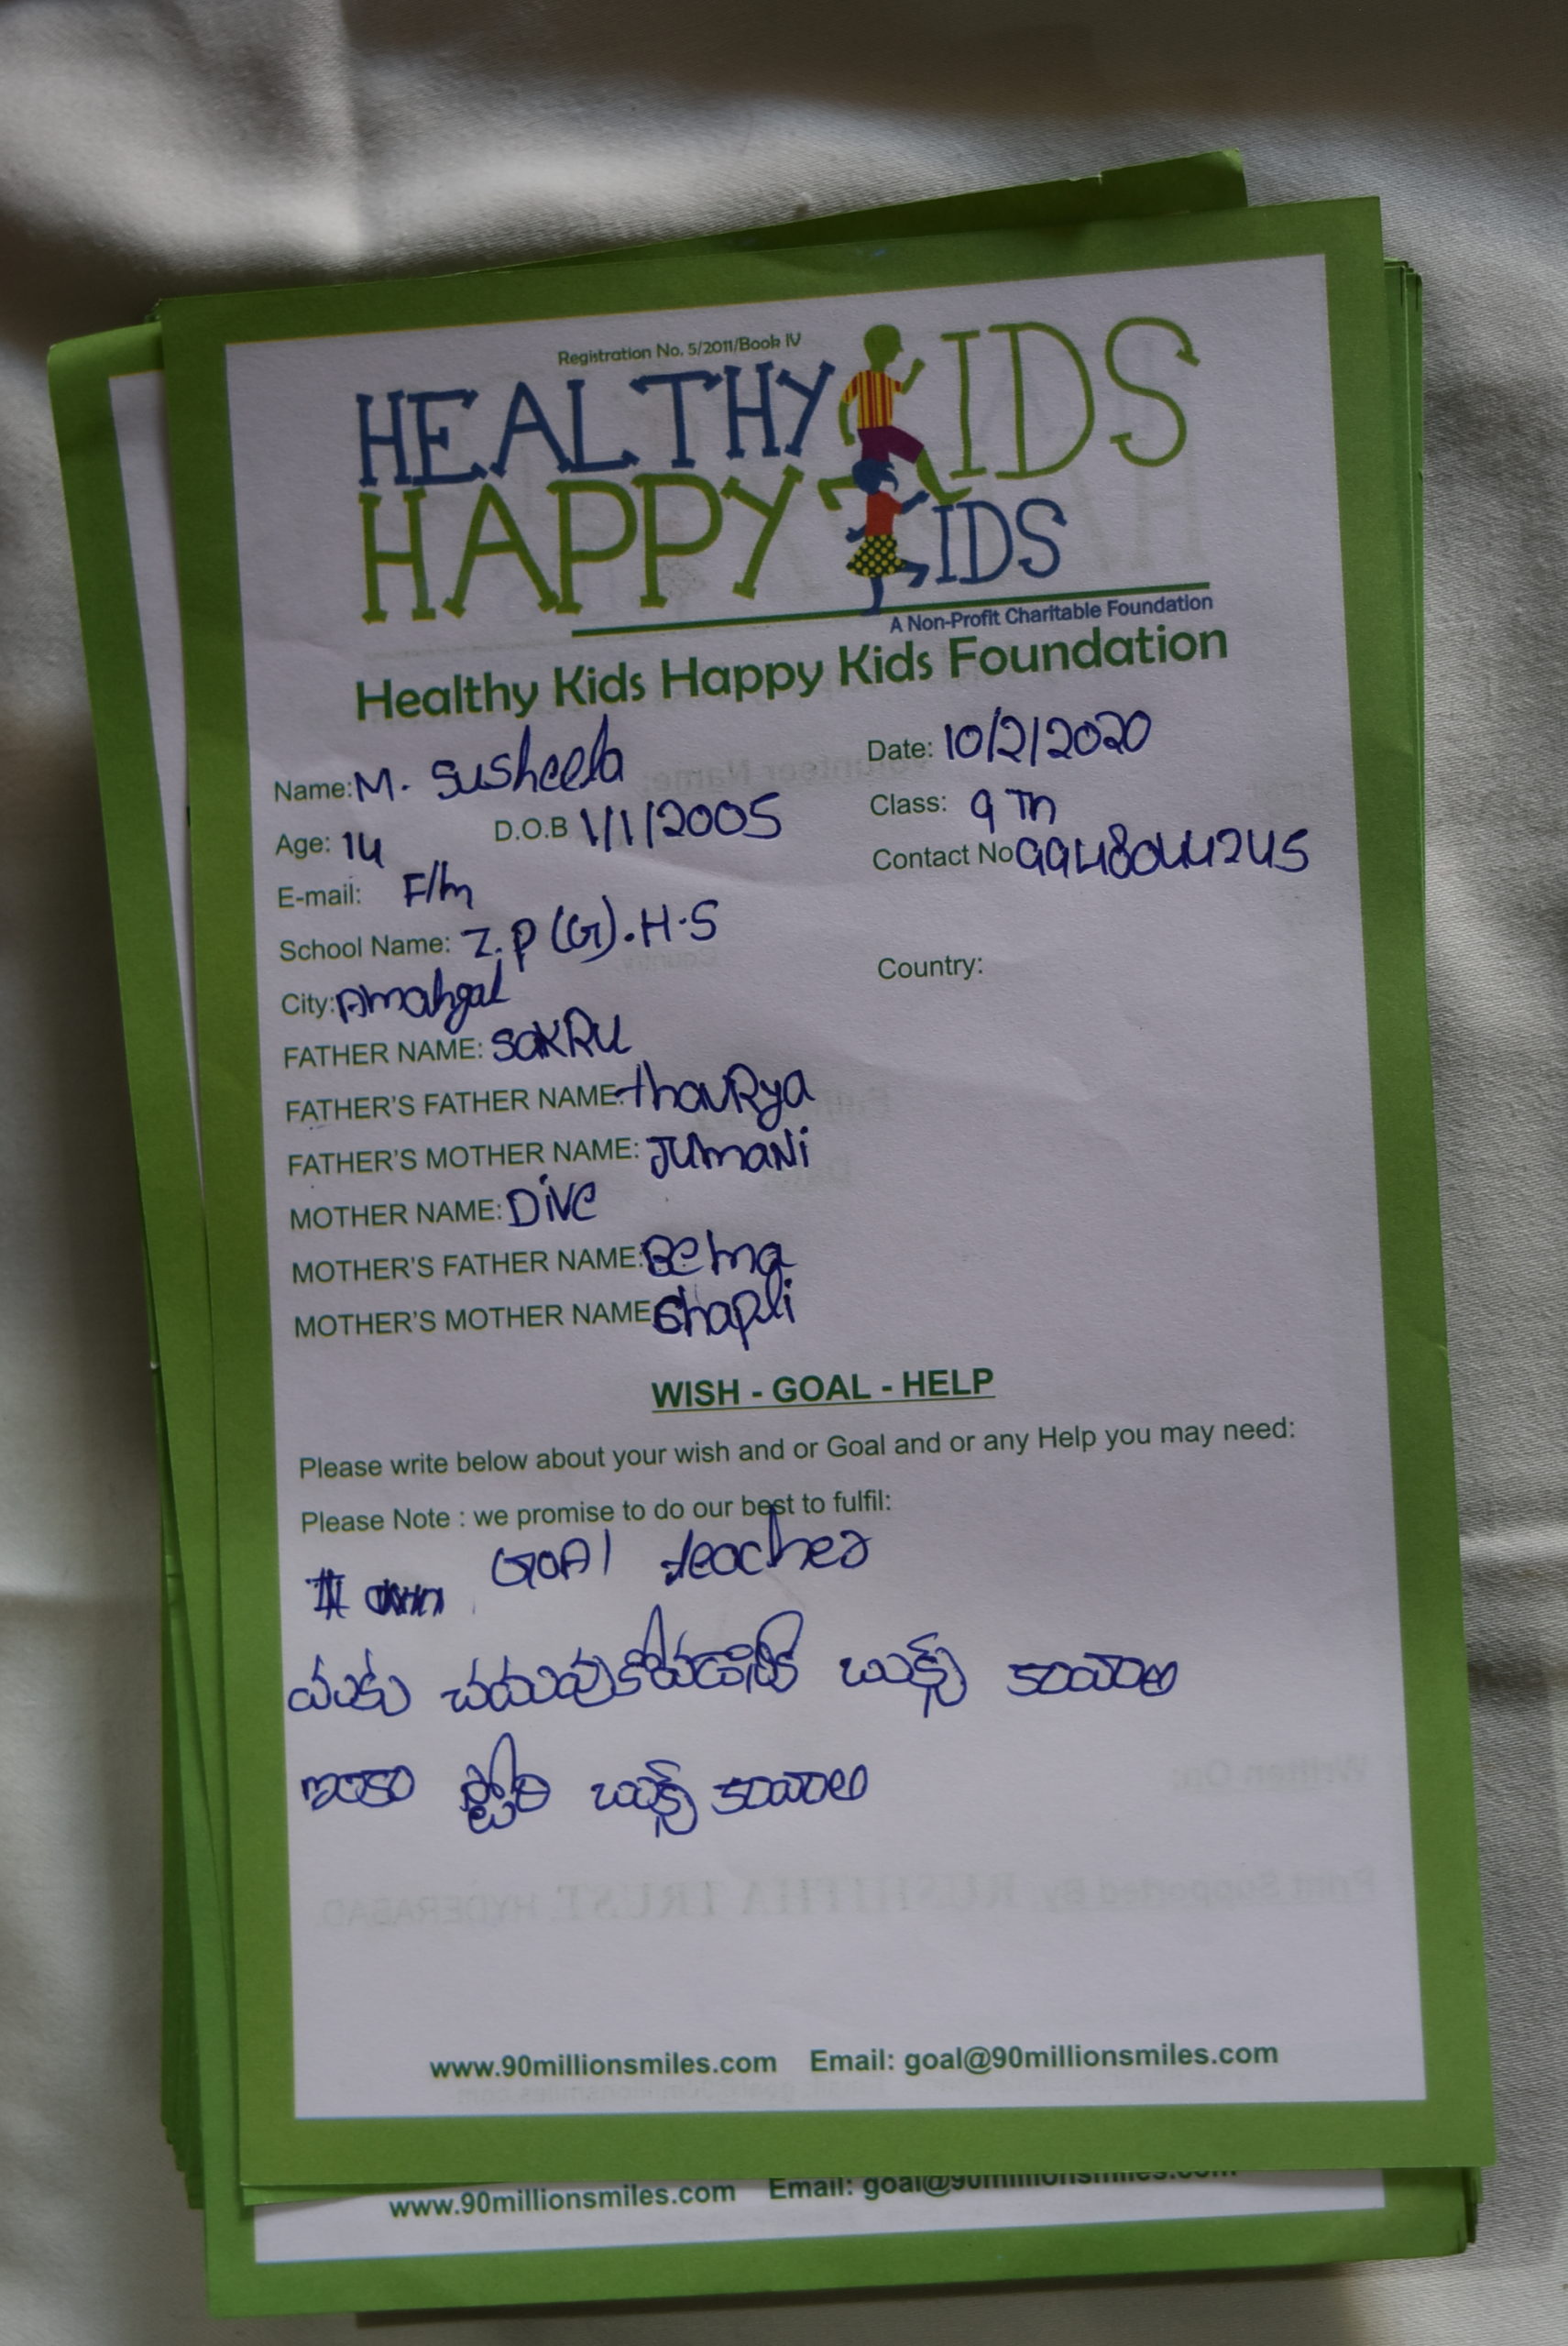 Registration No. 5/2011/Book IV
HEALTHY KIDS
HAPPY KIDS
A Non-Profit Charitable Foundation
Healthy Kids Happy Kids Foundation
Name: M. Susheela Date: 10/2/2020
Age: 14 D.O.B 1/1/2005 Class: 9 Th
E-mail: F/m Contact No 9948044245
School Name: Z.P (G).H.S
City: Amangal Country:
FATHER NAME: SAKRU
FATHER'S FATHER NAME: thavRya
FATHER'S MOTHER NAME: JUmaNi
MOTHER NAME: Dive
MOTHER'S FATHER NAME:
MOTHER'S MOTHER NAME
WISH - GOAL - HELP
Please write below about your wish and or Goal and or any Help you may need:
Please Note : we promise to do our best to fulfil:
GOAl teacher
మకు చదువుకోవడానికి బుక్స్ కావాలి
ఇంకా స్టోరి బుక్స్ కావాలి
www.90millionsmiles.com Email: goal@90millionsmiles.com
www.90millionsmiles.com Email: goal@90millionsmiles.com